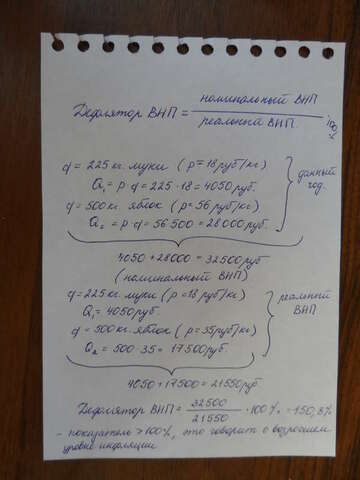 Дефлятор ВНП = номинальный ВНП / реальный ВНП · 100%
q = 225 кг. муки (p = 18 руб/кг)
Q₁ = p · q = 225 · 18 = 4050 руб.
q = 500 кг. яблок (p = 56 руб/кг)
Q₂ = p · q = 56 500 = 28000 руб.
данный год.
4050 + 28000 = 32500 руб
(номинальный ВНП)
q = 225 кг. муки (p = 18 руб/кг)
Q₁ = 4050 руб.
q = 500 кг. яблок (p = 35 руб/кг)
Q₂ = 500 · 35 = 17500 руб.
реальный ВНП
4050 + 17500 = 21550 руб
Дефлятор ВНП = 32500 / 21550 · 100% = 150,8%
- показатель > 100%, это говорит о возросшем
уровне инфляции